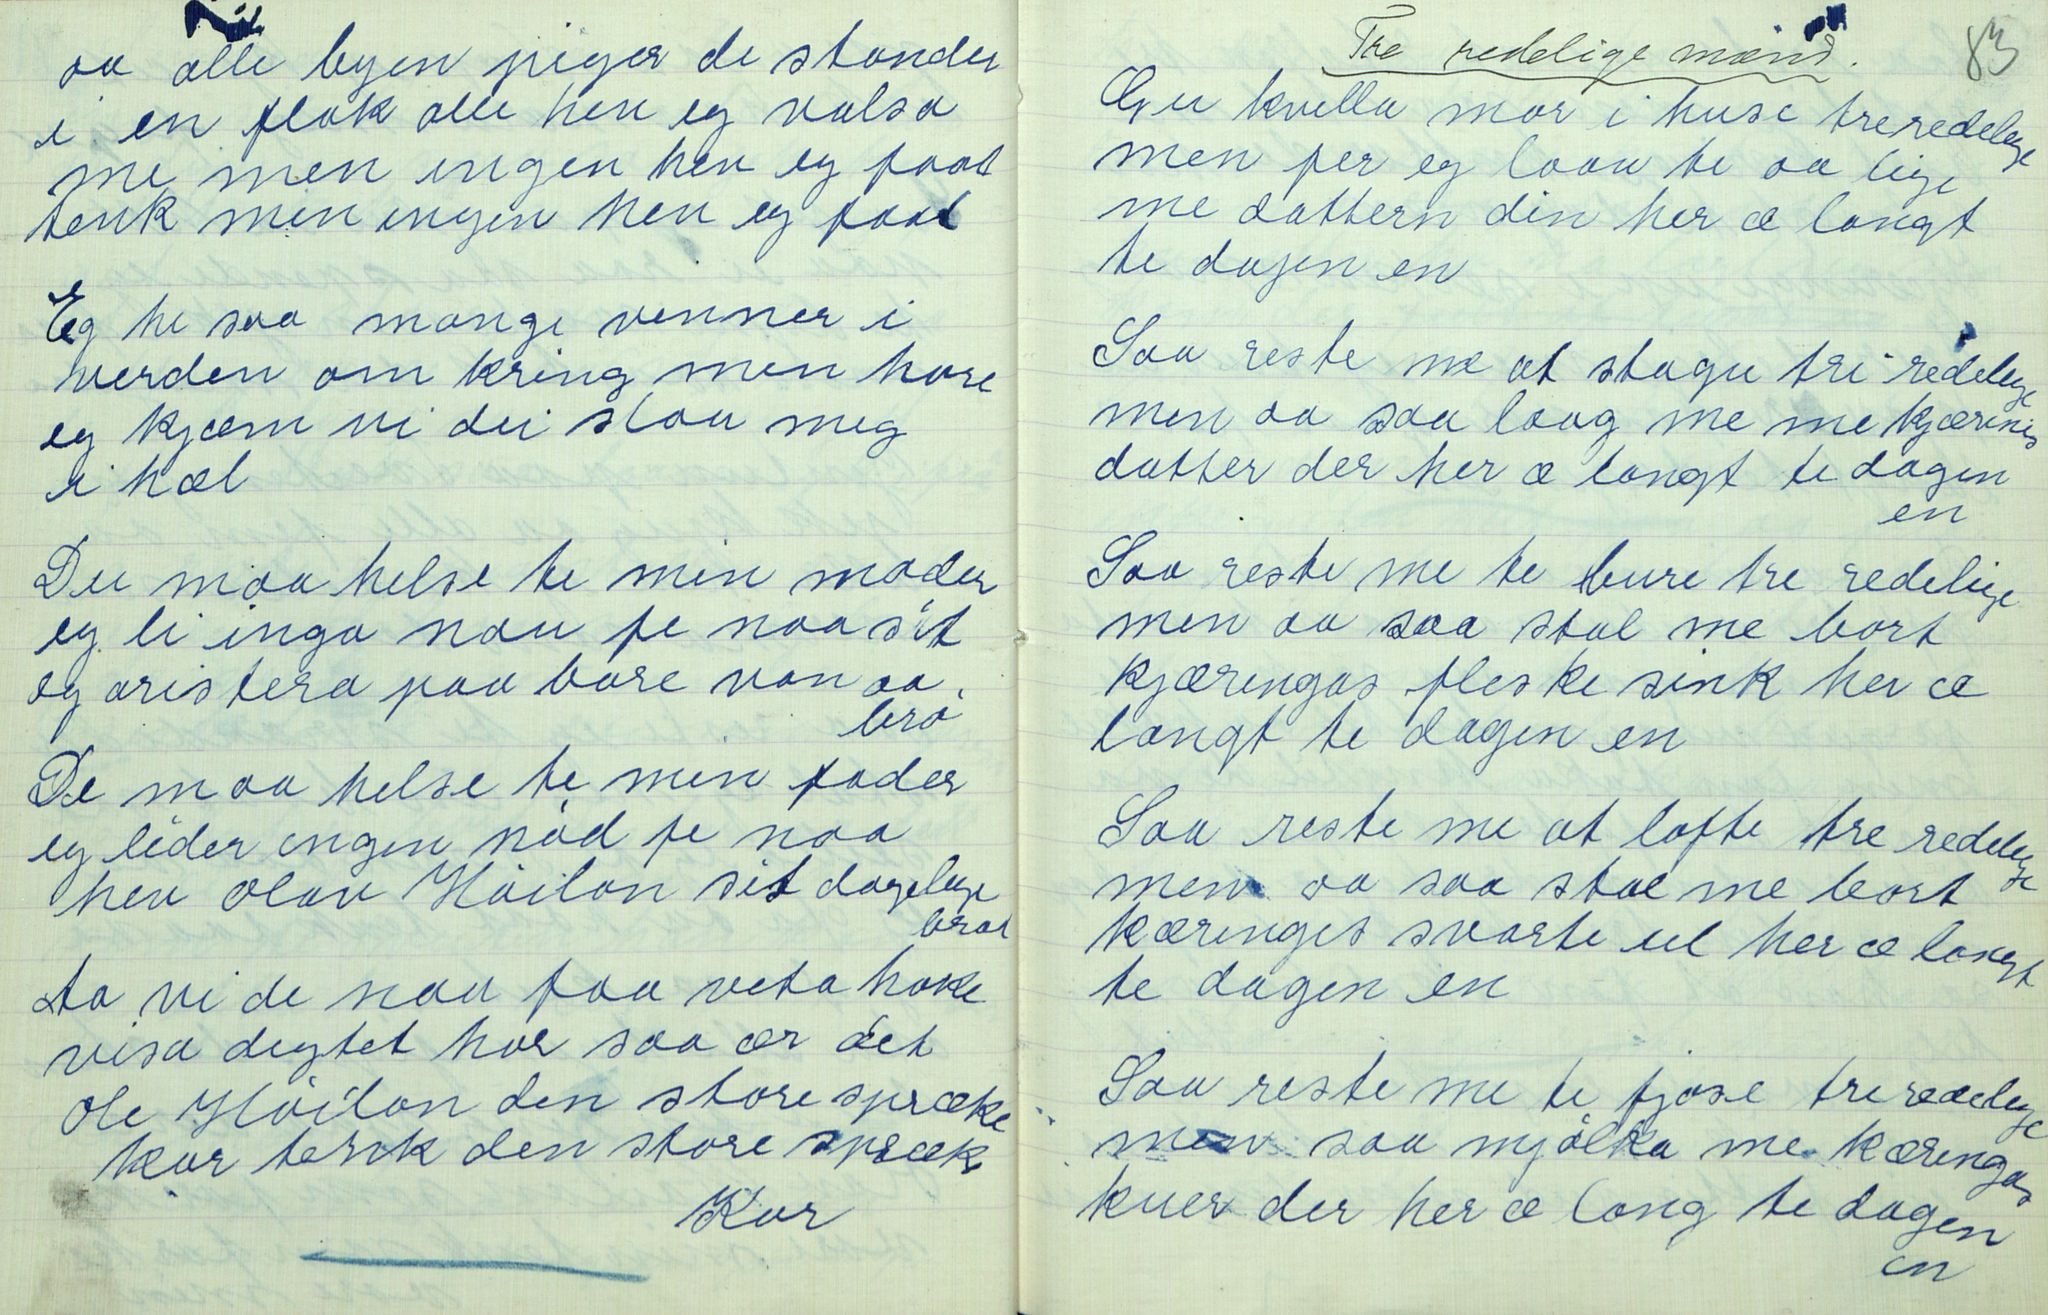 oa alle byen piger de stander
i en flok alle hev eg valsa
me men ingen hev eg faat
tenk men ingen hev eg faat
Eg he saa mange venner i
verden om kring men hore
eg kjæm vi dei slaa meg
i hæl
Du maa helse te min moder
eg li inga nau fe naa sit
og aristera paa bare van oa
brø
De maa helse te min fader
eg lider ingen nød fe naa
hev Olav Høilon sit dagelige
brød
ta vi de nau faa veta hoke
visa digtet har saa ær det
Ole Høilon den store spræke
kar tenk den store spræke
Kar
83
Tre redelige mænd.
Gu kvella mor i huse tre redelige
men per eg laav te aa lige
me dattern din her æ langt
te dagen en
Saa reste me at stagu tri redelige
men oa saa laag me me kjærings
datter der her æ langt te dagen
en
Saa reste me te bure tre redelige
men oa saa stal me bort
kjæringas fleske sink her æ
langt te dagen en
Saa reste me at lofte tre redelige
men oa saa stal me bort
kæringes svarte ul her æ langt
te dagen en
Saa reste me te fjøse tre redelige
men saa mjølka me kæringas
kuer der her æ lang te dagen
en